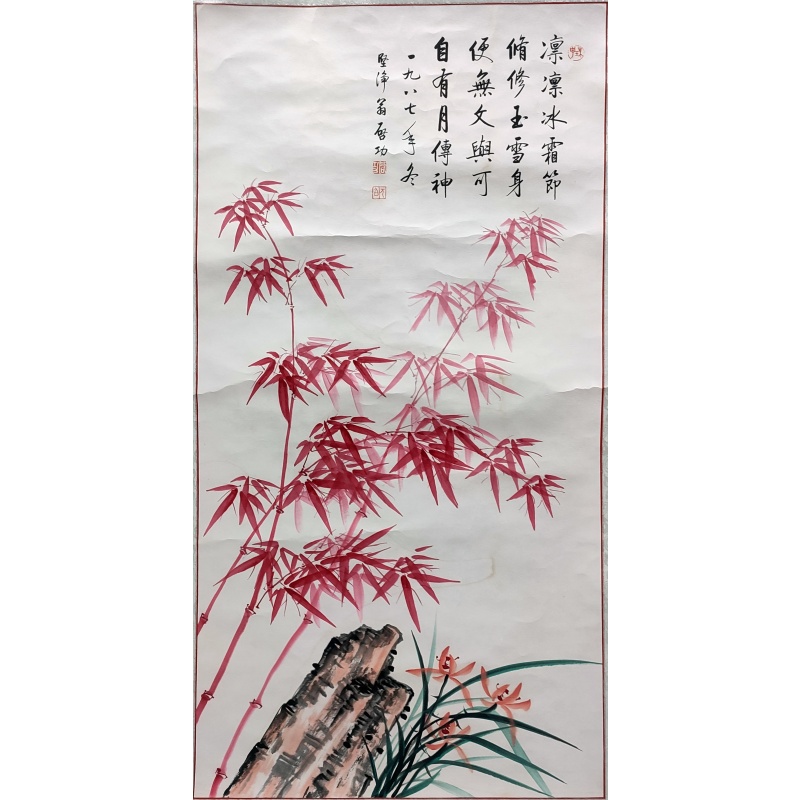 凛凛冰霜節
脩修玉雪身
便無文與可
自有月傳神
一九八七年冬
堅净翁啓功